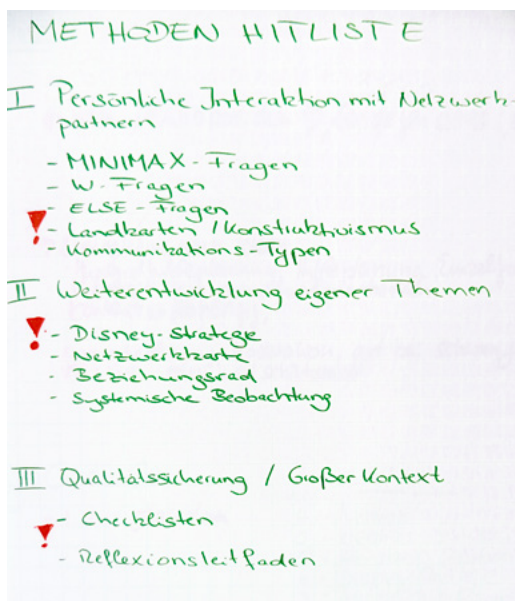 METHODEN HITLISTE
I Persönliche Interaktion mit Netzwerk-
partnern
- MINIMAX-Fragen
- W-Fragen
- ELSE-Fragen
! - Landkarten / Konstruktivismus
- Kommunikations-Typen
II Weiterentwicklung eigener Themen
! - Disney-Stratege
- Netzwerkkarte
- Beziehungsrad
- Systemische Beobachtung
III Qualitätssicherung / Großer Kontext
! - Checklisten
- Reflexionsleitfaden